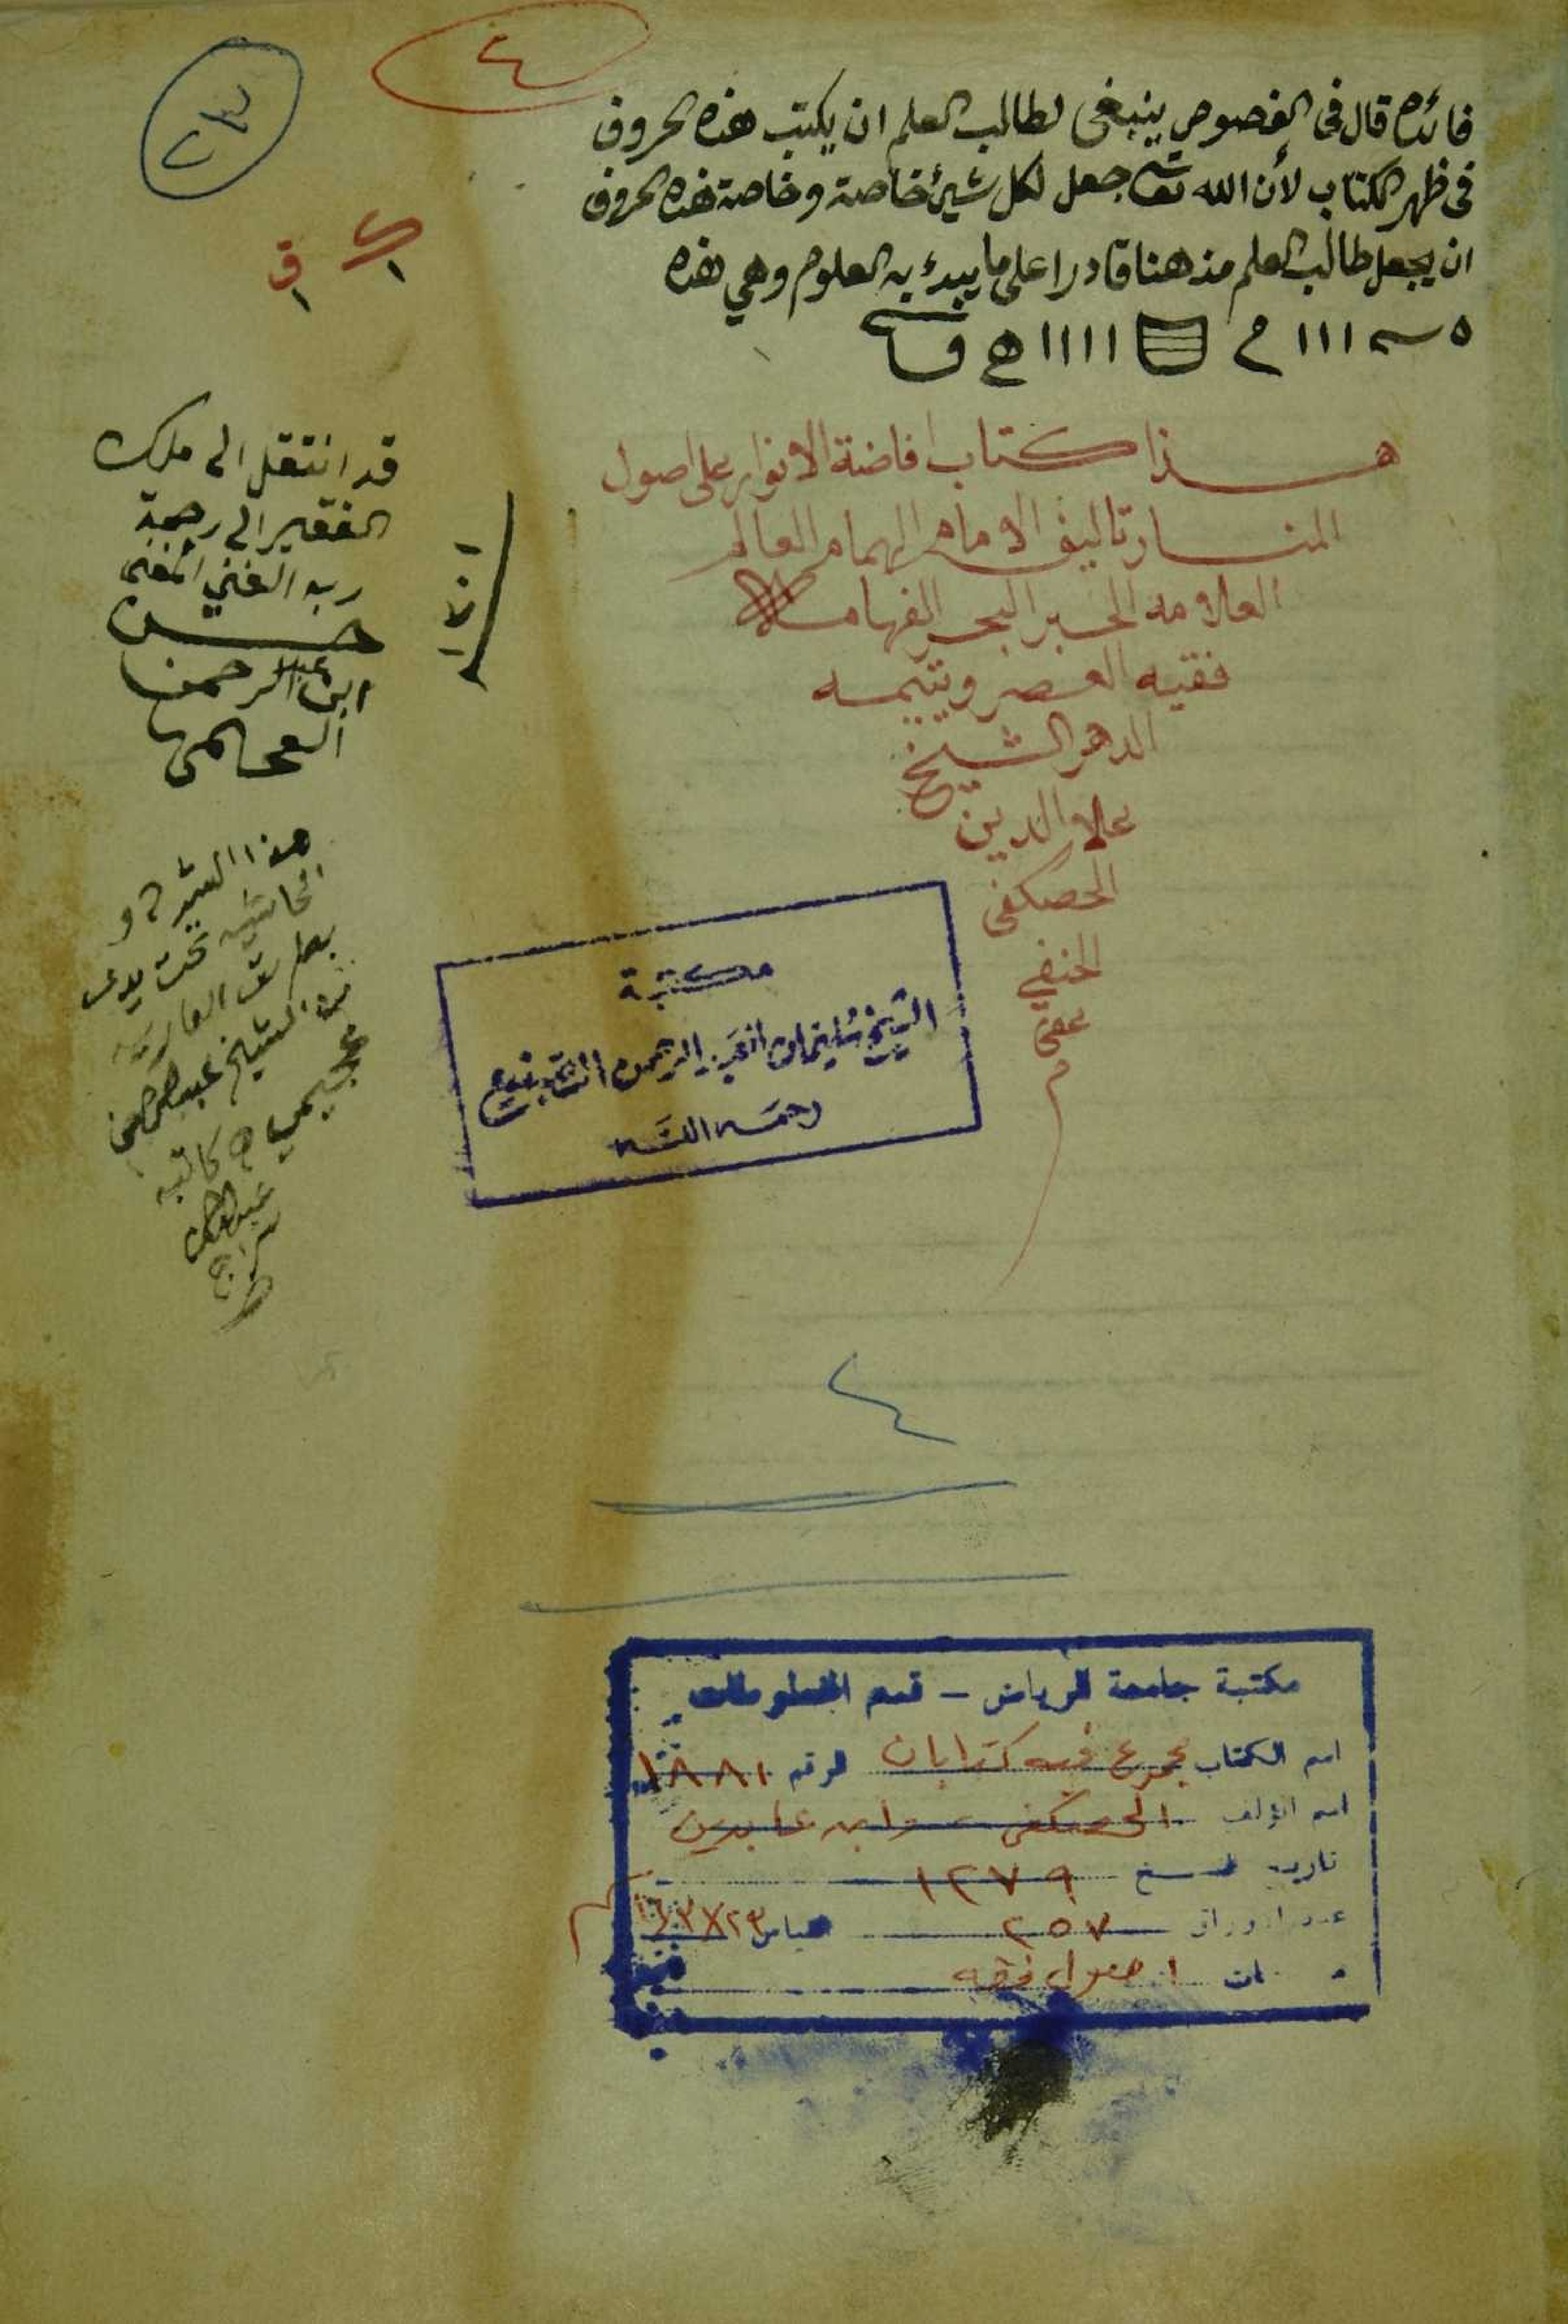 ٤
٢٣
فائده قال فى الفصوص ينبغى لطالب العلم ان يكتب هذه الحروف
فى ظهر الكتاب لأن الله تعالى جعل لكل شيئ خاصة وخاصة هذه الحروف
ان يجعل طالب العلم من هنا قادرا على ما يبدء به العلوم وهي هذه
هـذا كتاب افاضة الانوار على اصول
المنـار تاليف الامام الهمام العالم
العلامه الحبر البحر الفهامـه
فقيه العصر ويتيمـه
الدهر الشيخ
علاء الدين
الحصكفى
الحنفي
عفى
م
قد انتقل الى ملك
الفقير الى رحمة
ربه الغني المغنى
حسـن
ابن عبد الرحمن
العجـيمى
هذا الشرح و
الحاشيه تحت يدى
بطريق العاريه
من الشيخ عبدالرحمن
عجيمي كاتبه
سراج
مكتبة
الشيخ سليمان بن عبد الرحمن الصنيع
رحمه الله
٤
مكتبة جامعة الرياض - قسم المخطوطات
اسم الكتاب مجموع فيه كتابان الرقم ١٨٨١
اسم المؤلف الحصكفى - وابن عابدين
تاريخ النسخ ١٢٧٩
عدد الاوراق ٢٥٧ القياس ٢٣×١٦٫٣
اصول فقه